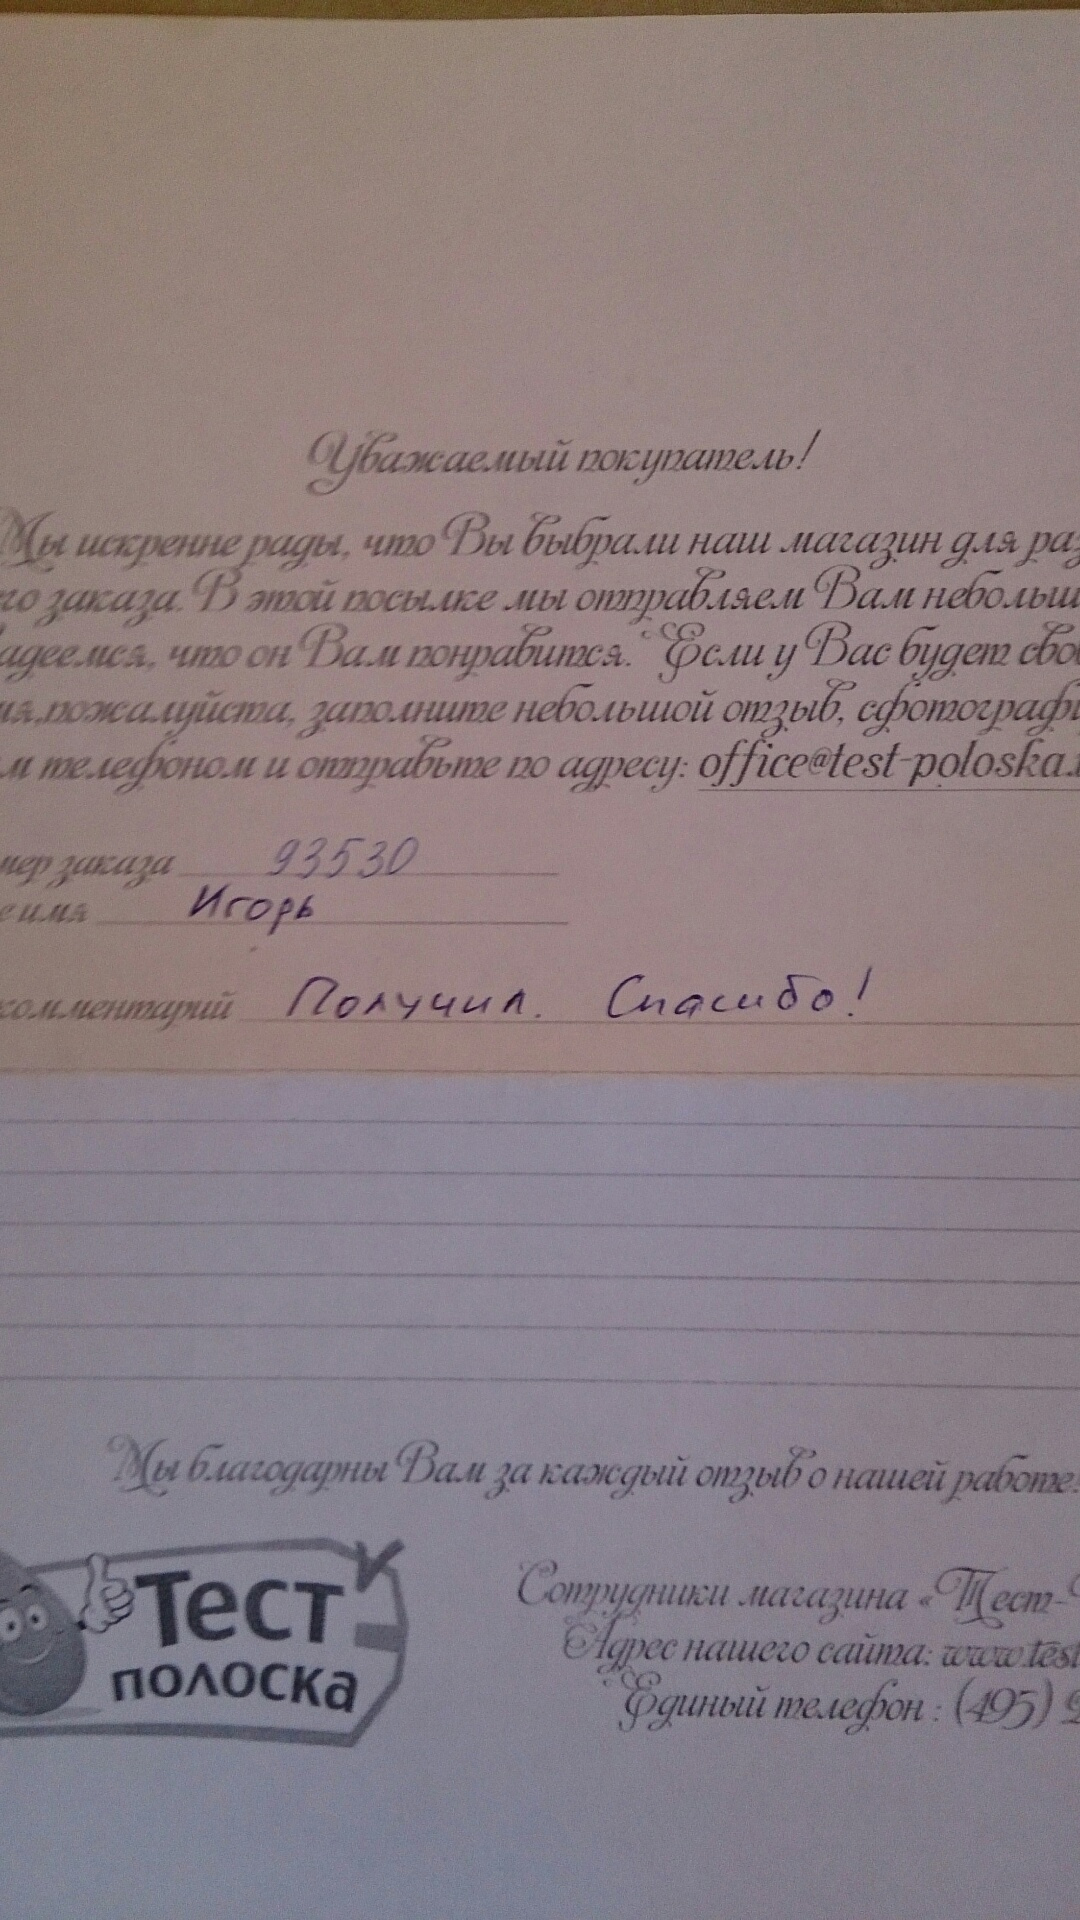 Уважаемый покупатель!
Мы искренне рады, что Вы выбрали наш магазин для раз
го заказа. В этой посылке мы отправляем Вам небольш
адеемся, что он Вам понравится. Если у Вас будет сво
ия, пожалуйста, заполните небольшой отзыв, сфотографи
м телефоном и отправьте по адресу: office@test-poloska.
мер заказа 93530
е имя Игорь
комментарий Получил. Спасибо!
Мы благодарны Вам за каждый отзыв о нашей работе.
Тест
полоска
Сотрудники магазина «Тест-
Адрес нашего сайта: www.test
Единый телефон : (495) 2